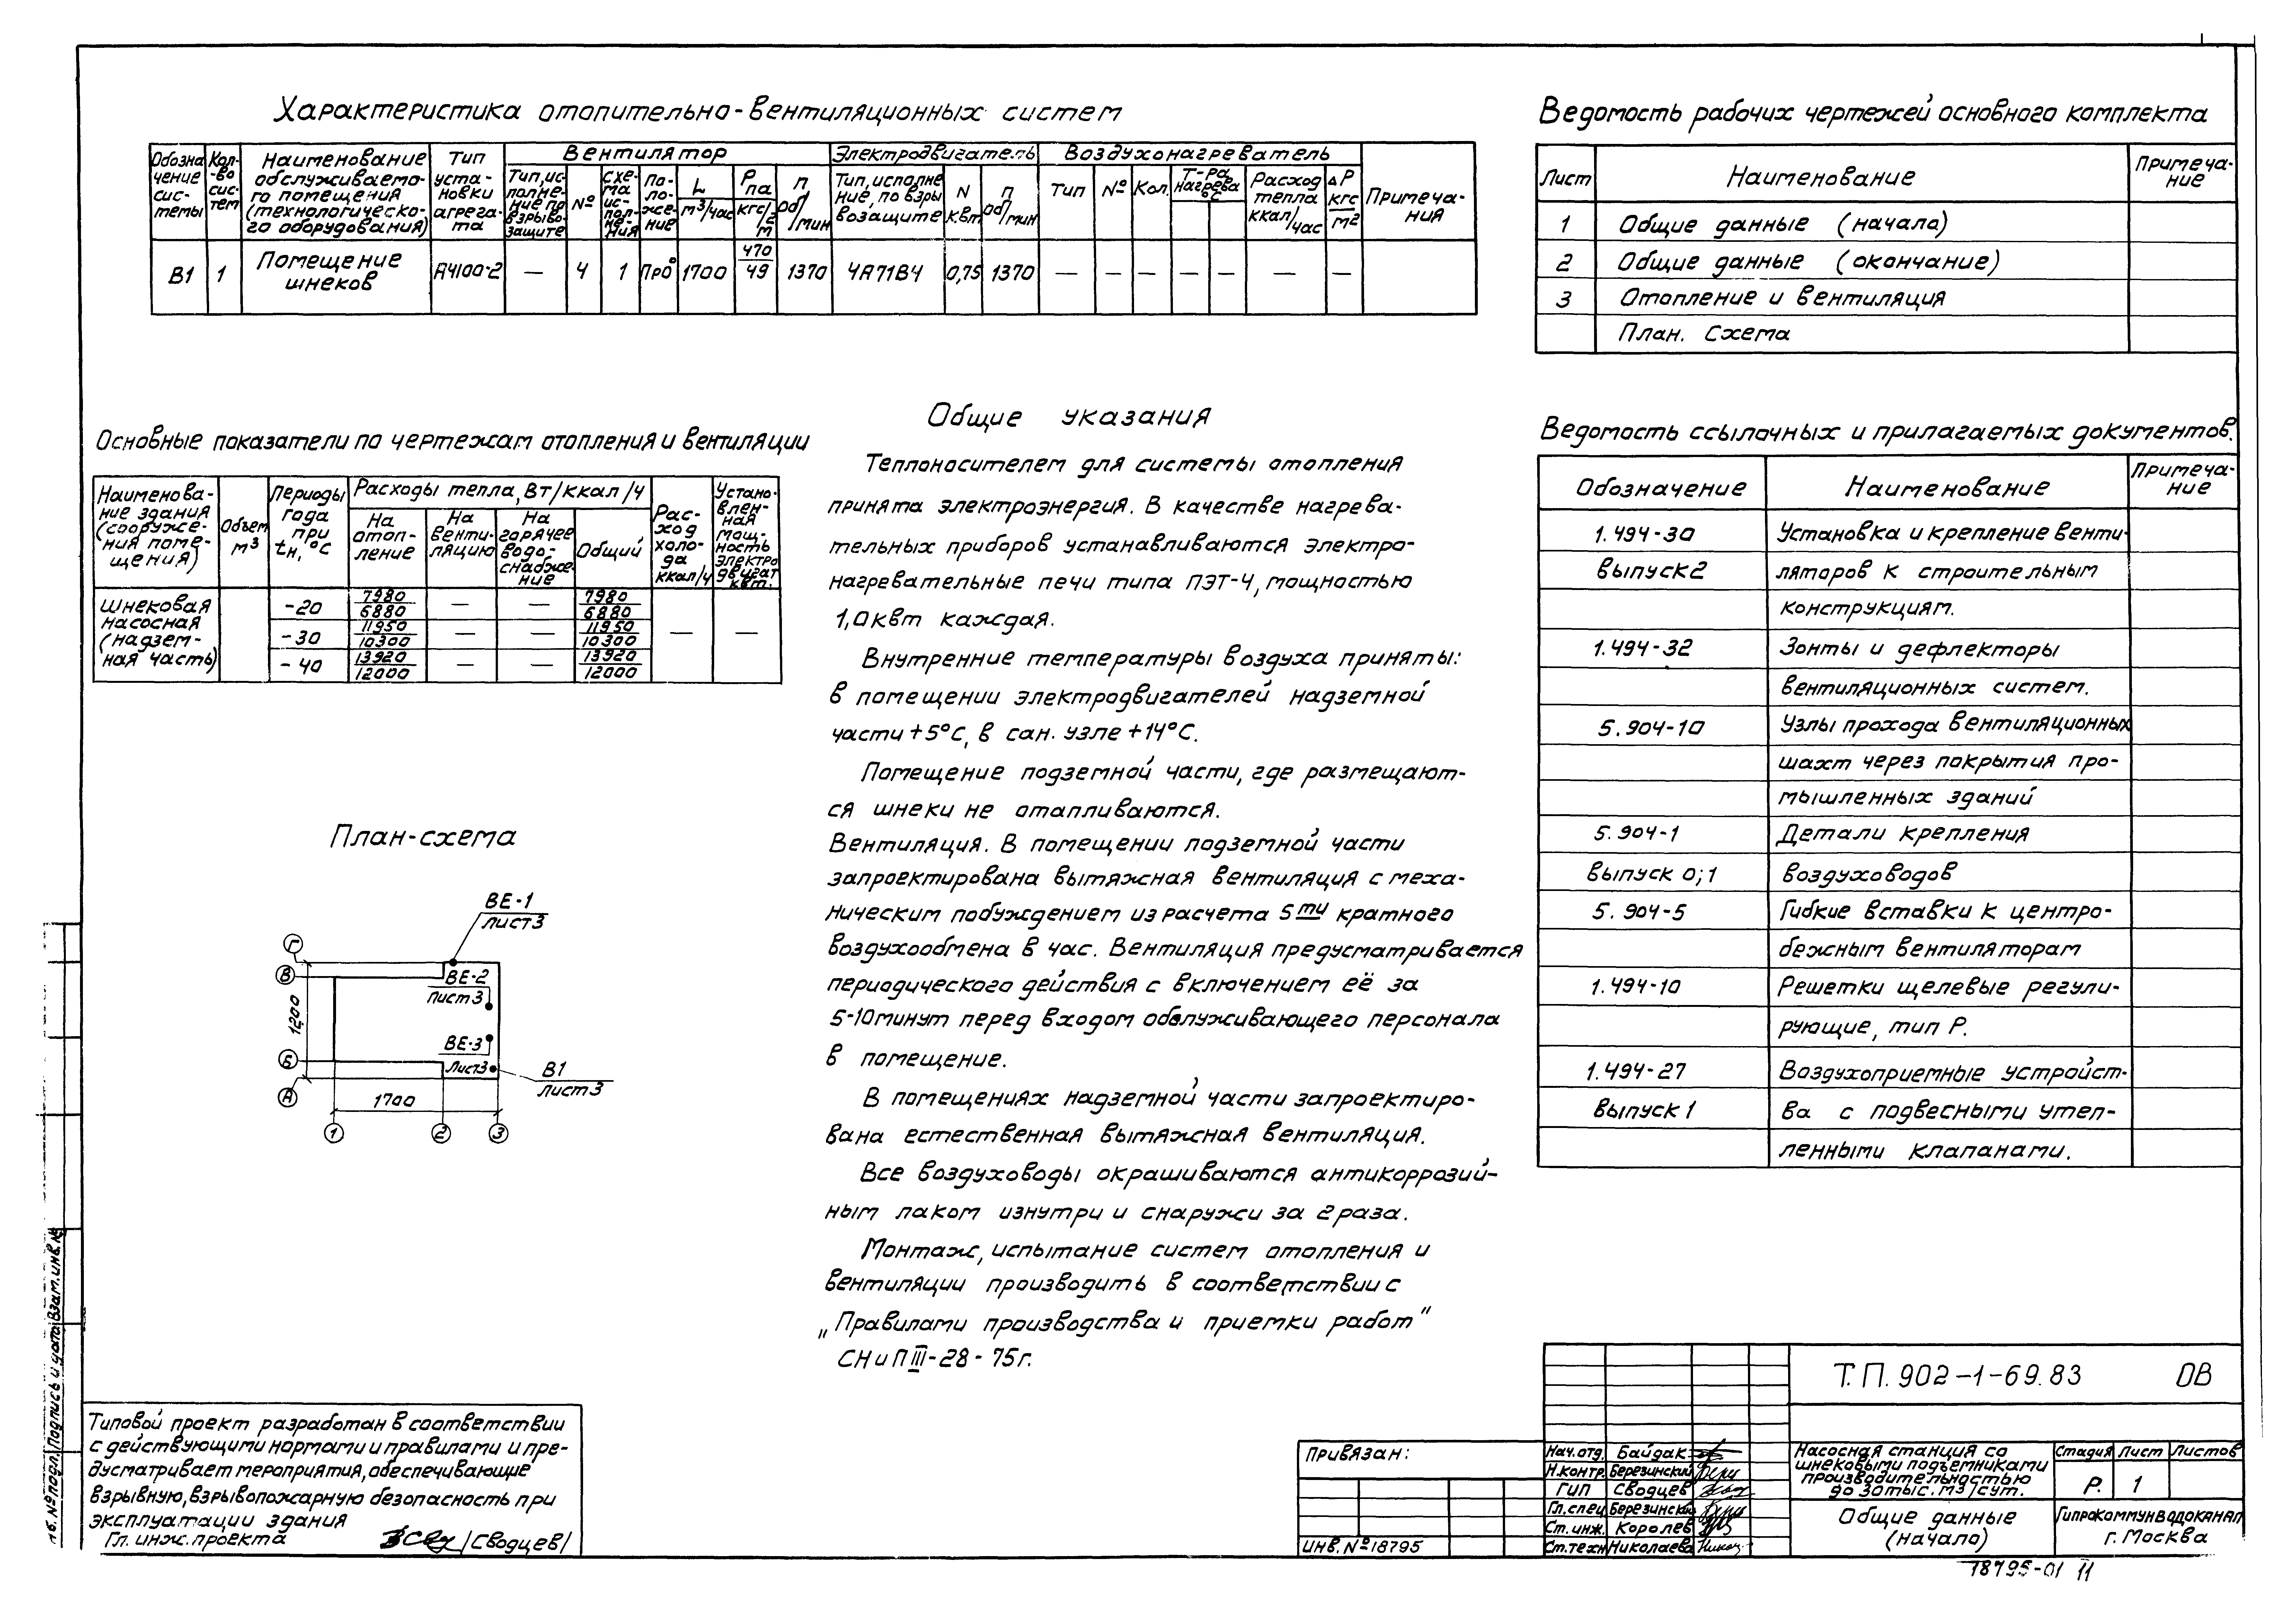 Характеристика отопительно-вентиляционных систем
Обозначение системы | Кол-во систем | Наименование обслуживаемого помещения (технологического оборудования) | Тип установки агрегата | Вентилятор | Электродвигатель | Воздухонагреватель | Примечания
Тип, исполнение по взрывозащите | № | Схема исполнения | Положение | L м³/час | P па кгс/м² | n об/мин | Тип, исполнение, по взрывозащите | N квт | n об/мин | Тип | № | Кол. | Т-ра нагрева °С | Расход тепла ккал/час | ΔР кгс/м²
В1 | 1 | Помещение шнеков | А4100-2 | — | 4 | 1 | Пр0° | 1700 | 470/49 | 1370 | 4А71В4 | 0,75 | 1370 | — | — | — | — | — | — | —
Ведомость рабочих чертежей основного комплекта
Лист | Наименование | Примечание
1 | Общие данные (начало)
2 | Общие данные (окончание)
3 | Отопление и вентиляция
План. Схема
Основные показатели по чертежам отопления и вентиляции
Наименование здания (сооружения помещения) | Объем м³ | Периоды года при tн, °С | Расходы тепла, Вт/ккал/ч | Расход холода ккал/ч | Установленная мощность электродвигат. квт.
На отопление | На вентиляцию | На горячее водоснабжение | Общий
Шнековая насосная (надземная часть) | -20 | 7980/6880 | — | — | 7980/6880 | — | —
-30 | 11950/10300 | — | — | 11950/10300
-40 | 13920/12000 | — | — | 13920/12000
Общие указания
Теплоносителем для системы отопления
принята электроэнергия. В качестве нагрева-
тельных приборов устанавливаются электро-
нагревательные печи типа ПЭТ-4, мощностью
1,0 квт каждая.
Внутренние температуры воздуха приняты:
в помещении электродвигателей надземной
части +5°С, в сан. узле +14°С.
Помещение подземной части, где размещают-
ся шнеки не отапливаются.
Вентиляция. В помещении подземной части
запроектирована вытяжная вентиляция с меха-
ническим побуждением из расчета 5ти кратного
воздухообмена в час. Вентиляция предусматривается
периодического действия с включением её за
5-10 минут перед входом обслуживающего персонала
в помещение.
В помещениях надземной части запроектиро-
вана естественная вытяжная вентиляция.
Все воздуховоды окрашиваются антикоррозий-
ным лаком изнутри и снаружи за 2 раза.
Монтаж, испытание систем отопления и
вентиляции производить в соответствии с
„Правилами производства и приемки работ“
СНиП III-28-75г.
Ведомость ссылочных и прилагаемых документов.
Обозначение | Наименование | Примечание
1.494-30 | Установка и крепление венти-
выпуск 2 | ляторов к строительным
конструкциям.
1.494-32 | Зонты и дефлекторы
вентиляционных систем.
5.904-10 | Узлы прохода вентиляционных
шахт через покрытия про-
мышленных зданий
5.904-1 | Детали крепления
выпуск 0;1 | воздуховодов
5.904-5 | Гибкие вставки к центро-
бежным вентиляторам
1.494-10 | Решетки щелевые регули-
рующие, тип Р.
1.494-27 | Воздухоприемные устройст-
выпуск 1 | ва с подвесными утеп-
ленными клапанами.
План-схема
ВЕ-1
лист 3
Г
В
ВЕ-2
лист 3
1200
ВЕ-3
Лист 3
Б
А
В1
лист 3
1700
1 2 3
Типовой проект разработан в соответствии
с действующими нормами и правилами и пре-
дусматривает мероприятия, обеспечивающие
взрывную, взрывопожарную безопасность при
эксплуатации здания
Гл. инж. проекта /Сводцев/
Привязан:
Инв. № 18795
Нач. отд. Байдак
Н.контр. Березинский
ГИП Сводцев
Гл. спец. Березинский
Ст. инж. Королев
Ст. техн. Николаева
Т.П. 902-1-69.83 ОВ
Насосная станция со
шнековыми подъемниками
производительностью
до 30 тыс. м3/сут.
Стадия Лист Листов
Р. 1
Общие данные
(начало)
Гипрокоммунводоканал
г. Москва
18795-01 11
Подпись и дата Взам. инв. №